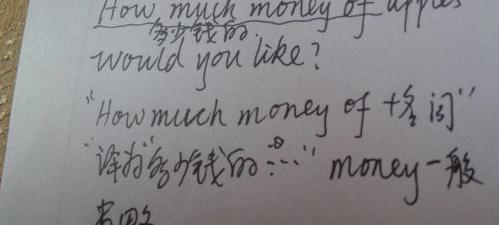 How much money of apples
多少钱的
would you like?
"How much money of +名词"
译为"多少钱的……" money一般
省略